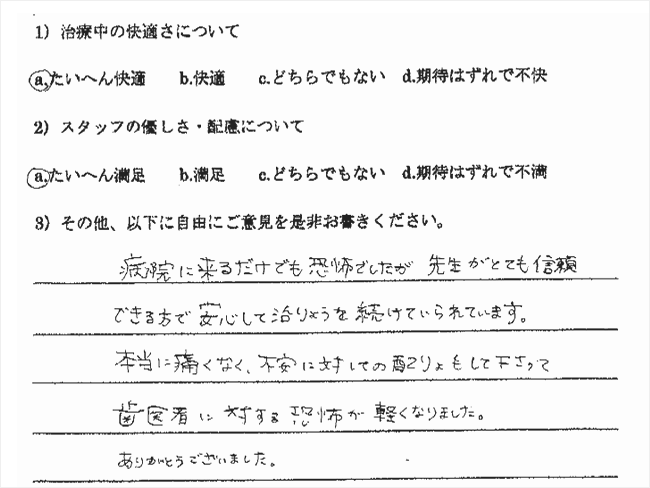 1) 治療中の快適さについて
a.たいへん快適 b.快適 c.どちらでもない d.期待はずれで不快
2) スタッフの優しさ・配慮について
a.たいへん満足 b.満足 c.どちらでもない d.期待はずれで不満
3) その他、以下に自由にご意見を是非お書きください。
病院に来るだけでも恐怖でしたが 先生がとても信頼
できる方で安心して治りょうを続けていられています。
本当に痛くなく、不安に対しての配りょもして下さって
歯医者に対する恐怖が軽くなりました。
ありがとうございました。